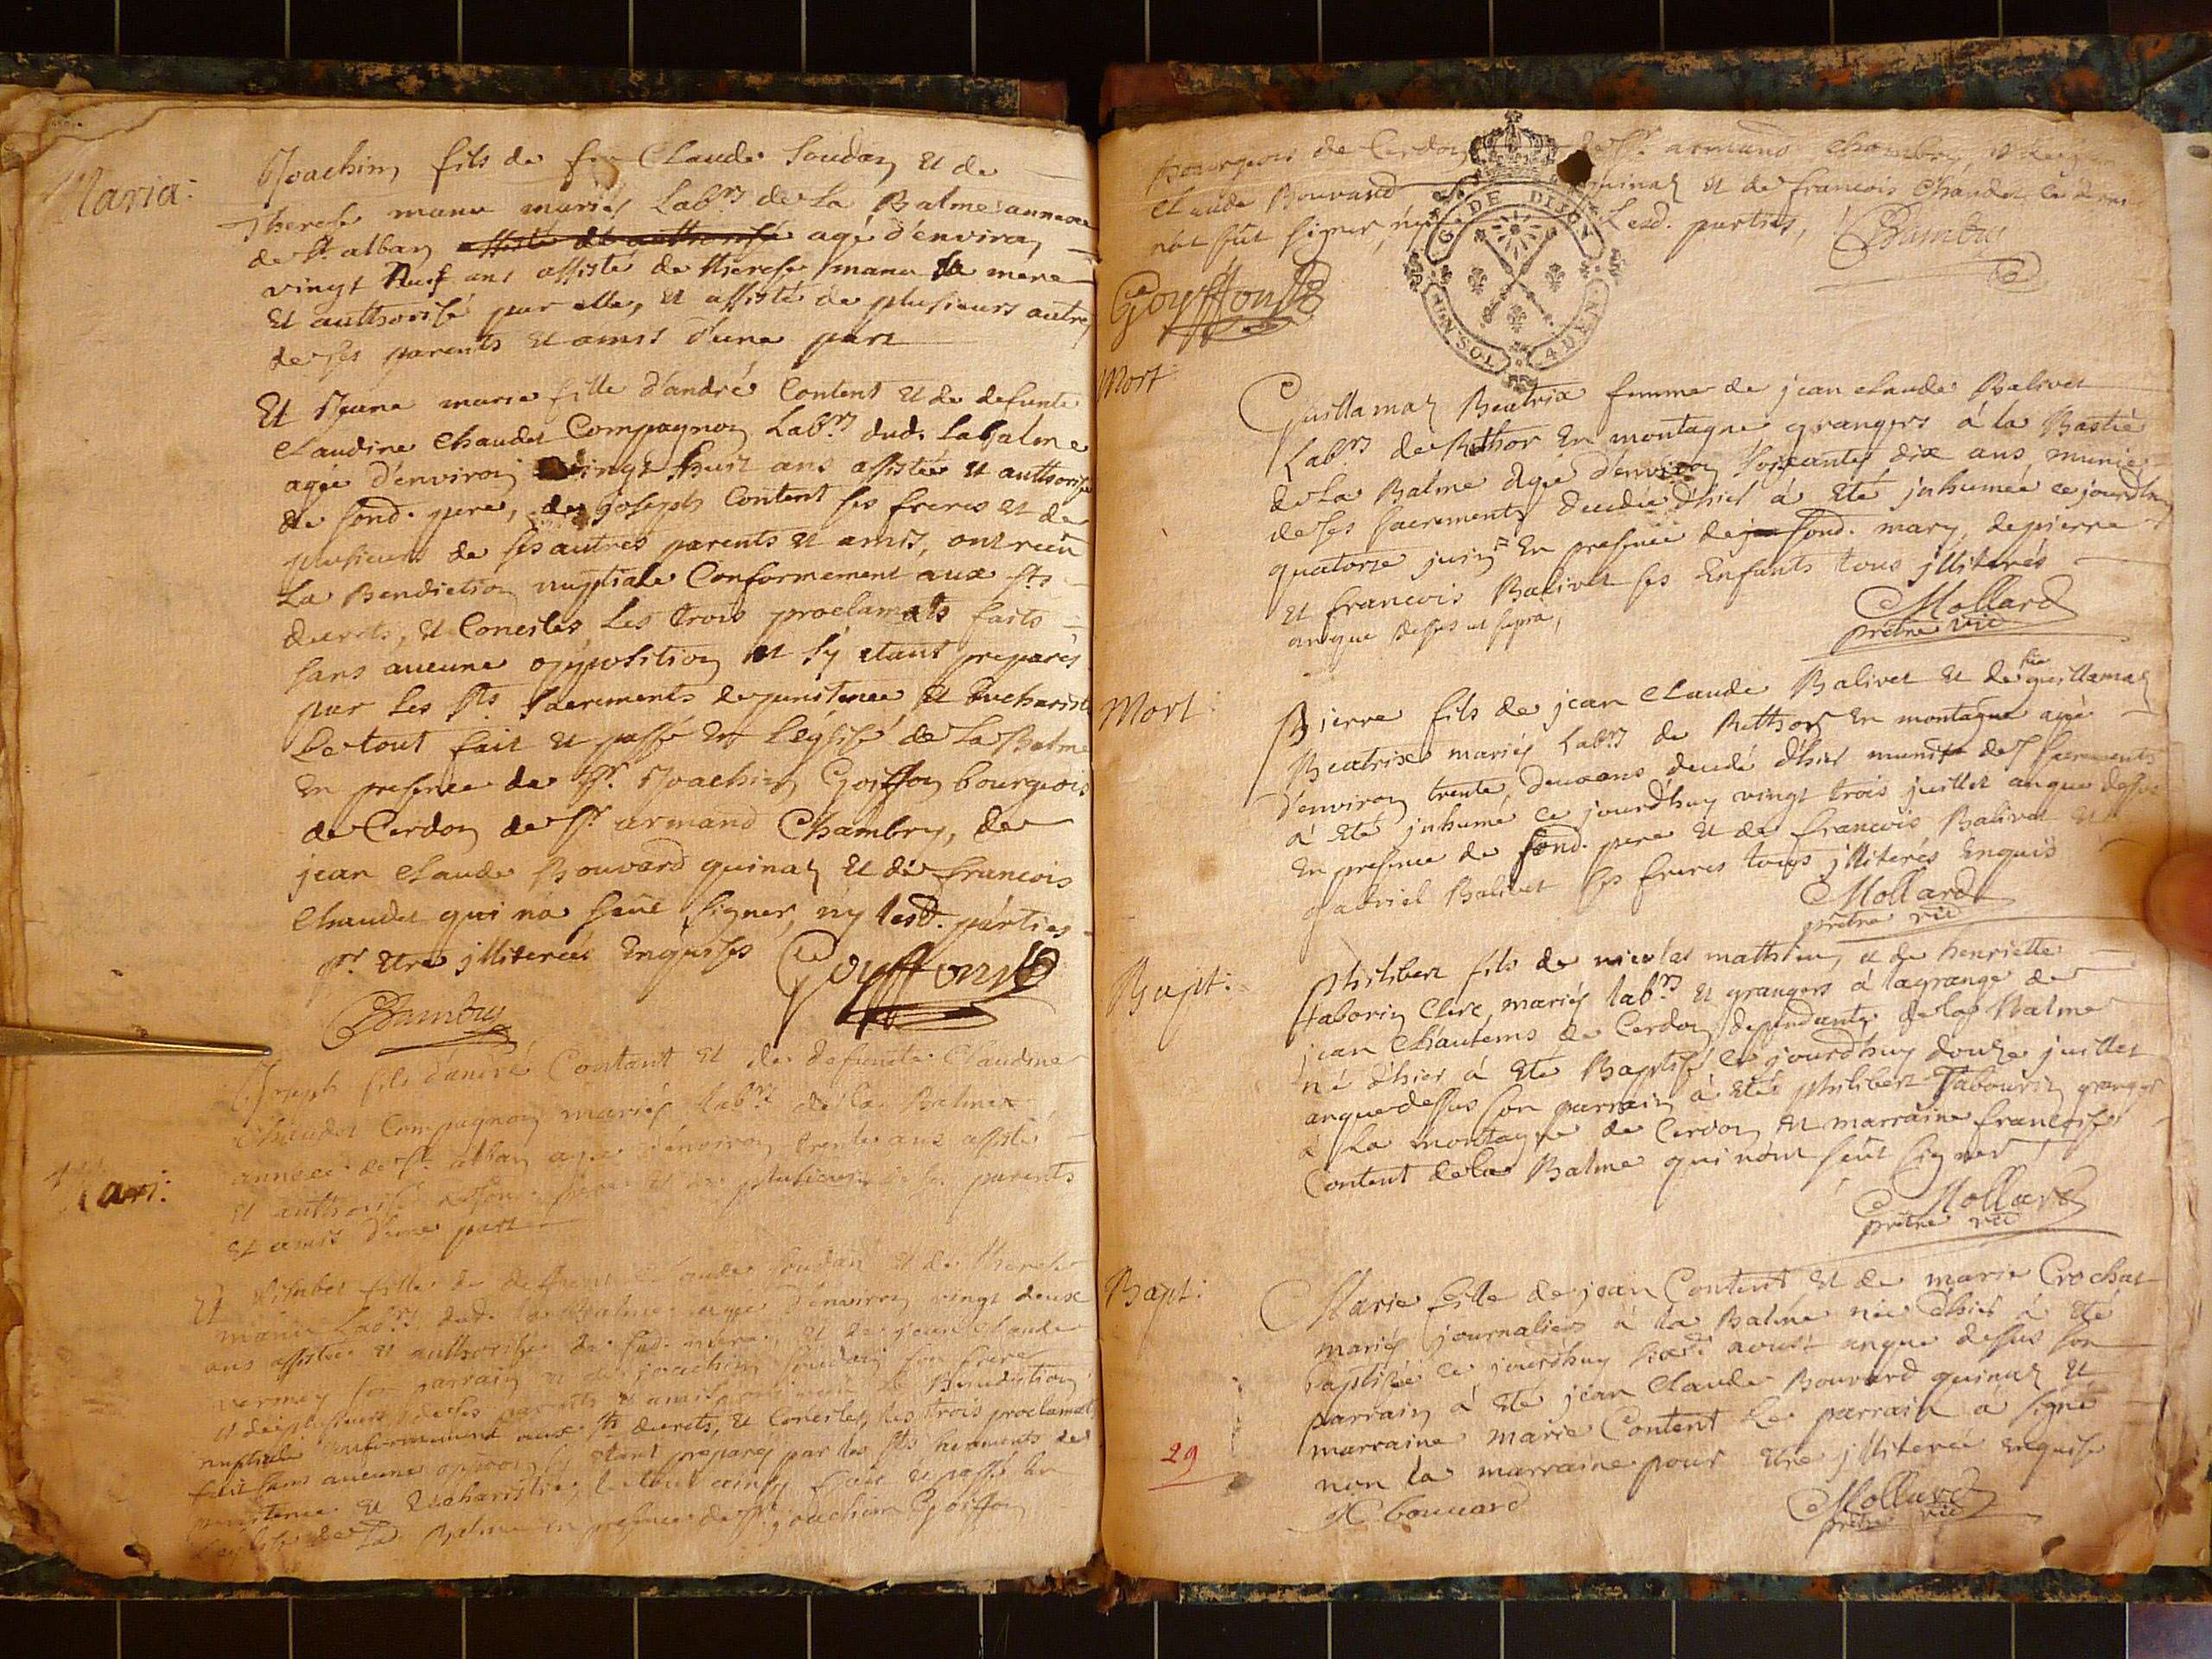 Maria:
Joachin fils de feu Claude Soudan et de
Therese manu mariés Labrs de La Balme annexe
de St alban assisté et authorisé agé d'environ
vingt Neuf ans assisté de therese manu sa mere
et authorisé par elle, et assisté de plusieurs autres
de ses parents et amis d'une part
Et Jeane marie fille d'andré Content et de defunte
Claudine Chaudet Compagnon Labrs dud. Labalme
agée d'environ vingt huit ans assistée et authorisée
de sond. pere, de joseph Content ses freres et de
plusieurs de ses autres parents et amis, ont reçu
La Benediction nuptiale Conformement aux sts
decrets, et Conciles Les trois proclamats faits
sans aucune opposition et s'y etant preparés
par les sts sacrements de penitence et Eucharistie
Le tout fait et passé en l'église de La Balme
en presence de sr Joachin Goiffon bourgeois
de Cerdon de sr armand Chambry, de
jean Claude Bouvard quinaz et de francois
Chaudet qui na sçeut signer, ny lesd. parties
pr etre illiterées enquises Goyffonst
Chambry
Mari:
Joseph fils d'andré Contant et de defuncte Claudine
Chaudet Compagnon mariés labrs de la Balme
annexe de st alban agé d'environ trente ans assisté
et authorisé de sond. pere et de plusieurs de ses parents
et amis d'une part
Et Elisabet fille de defunt Claude Soudan et de therese
manu Labrs dud. la Balme agée d'environ vingt deux
ans assistée et authorisée de sad. mere, et de jean Claude
vermey son parrain et de joachin soudan son frere
et de plusieurs de ses parents et amis, ont reçu la Benediction
nuptiale Conformement aux sts decrets, et Conciles, les trois proclamats
fait sans aucune oppoon s'y etant preparés par les sts sacrements de
penitence et Eucharistie, le tout ainsy fait et passé en
l'eglise de La Balme en presence de sr joachim Goiffon
bourgeois de Cerdon de sr armand Chambry, de jean
Claude Bouvard quinaz et de francois Chaudet
not sçut signer, ny Lesd. parties, Chambry
G. DE DIJON
UN SOL 4 DEN.
Goyffonst
Mort
Guillamaz Beatrix femme de jean claude Balivet
Labrs de Rothor en montagne grangers á la Bastie
de La Balme agée d'environ soixante dix ans, munie
de ses sacrements decedée d'hier á eté inhumée ce jourdhuy
quatorze juin en presence de sond. mary, de pierre
et francois Balivet ses Enfants tous illiterés
an que dessus ut supra,
Mollard
prêtre vic
Mort
Pierre fils de jean Claude Balivet et de feue guillamaz
Beatrix mariés Labrs de Rothor en montagne agé
d'environ trente deux ans decedé d'hier munis des sacrements
á eté inhumé ce jourdhuy vingt trois juillet an que dessus
en presence de sond. pere et de francois Balivet et
gabriel Balivet ses freres tous illiterés enquis
Mollard
prêtre vic
Bapt:
Philibert fils de nicolas mathieu, et de henriette
Taborin Clerc mariés labrs et grangers á lagrange de
jean Chautems de Cerdon dependante de la Balme
né d'hier á eté Baptisé ce jourdhuy douze juillet
an que dessus son parrain á eté philibert Tabourin granger
á la montagne de Cerdon et marraine francoise
Content de la Balme qui n'ont sçut signer
Mollard
prêtre vic
Bapt:
Marie fille de jean Content et de marie Crochat
mariés journaliers á la Balme née d'hier á eté
baptisée ce jourdhuy aoust an que dessus son
parrain á eté jean Claude Bouvard quinaz et
marraine marie Content Le parrain á signé
non la marraine pour etre illiterée enquise
bouuard Mollard
prêtre vic
29